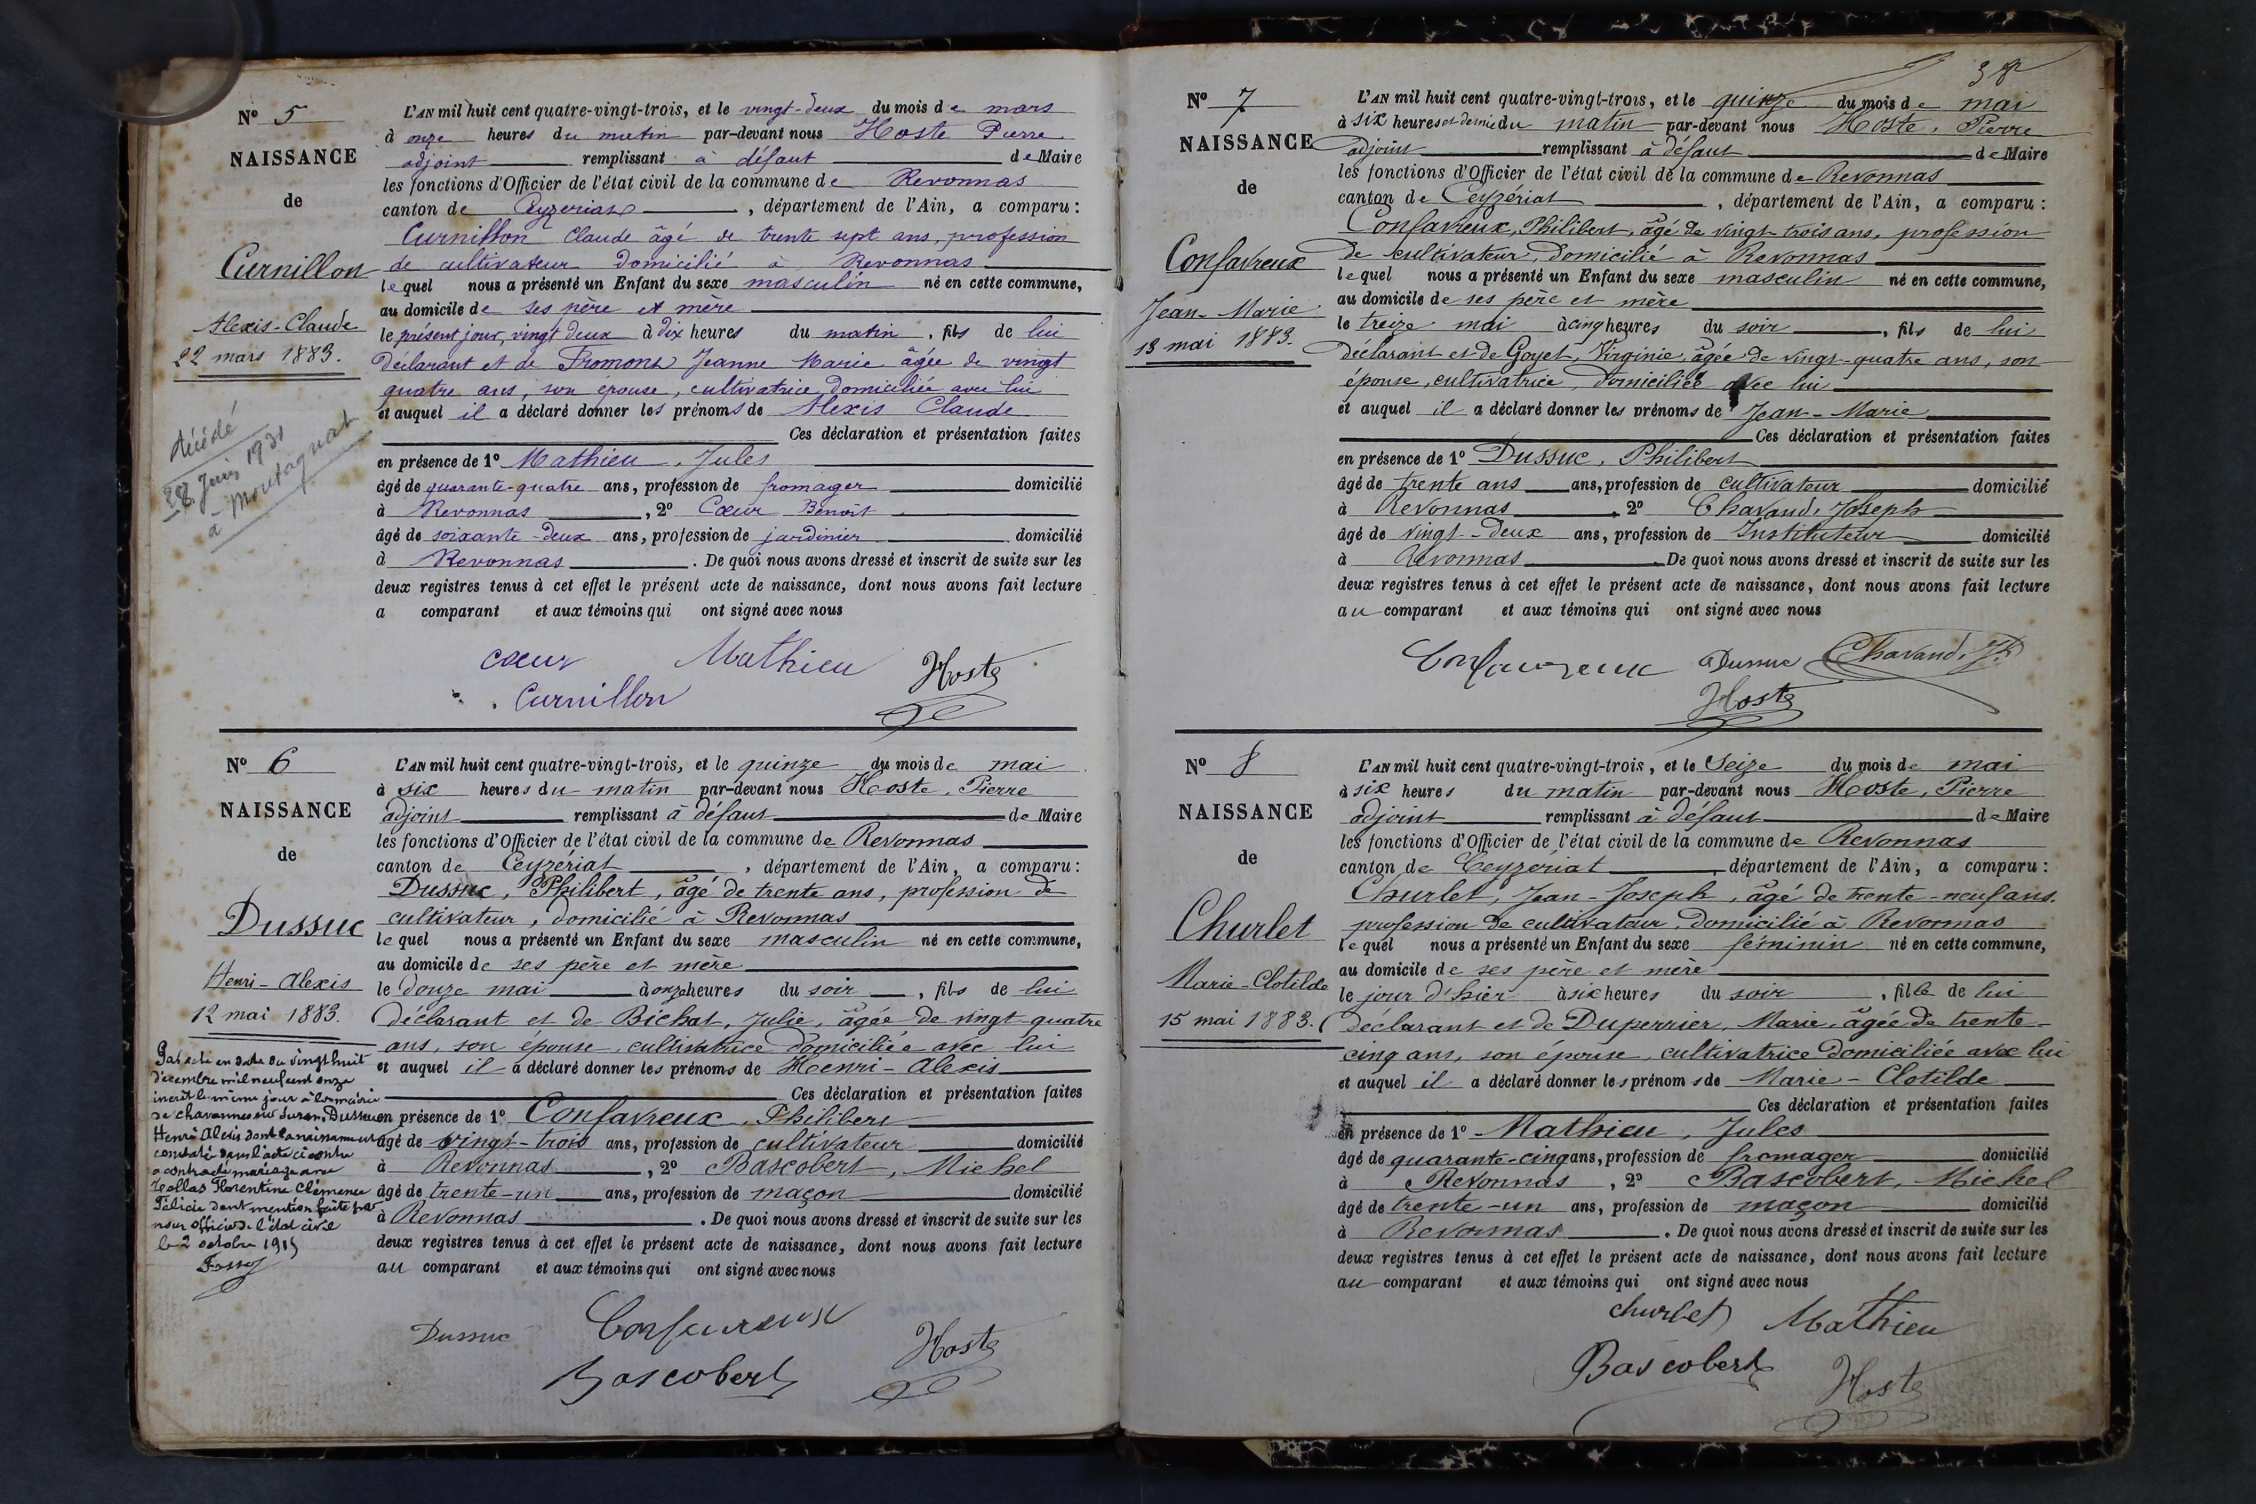 Nº 5
NAISSANCE
de
Curnillon
Alexis-Claude
22 mars 1883.
décédé
28 Juin 1931
à Montagnat
L'AN mil huit cent quatre-vingt-trois, et le vingt-deux du mois de mars
à onze heures du matin par-devant nous Hoste Pierre
adjoint remplissant à défaut de Maire
les fonctions d'Officier de l'état civil de la commune de Revonnas
canton de Ceyzeriat, département de l'Ain, a comparu :
Curnillon Claude âgé de trente sept ans, profession
de cultivateur domicilié à Revonnas
lequel nous a présenté un Enfant du sexe masculin né en cette commune,
au domicile de ses père et mère
le présent jour, vingt deux à dix heures du matin, fils de lui
déclarant et de Fromont Jeanne Marie âgée de vingt
quatre ans, son epouse, cultivatrice domiciliée avec lui
et auquel il a déclaré donner les prénoms de Alexis Claude
Ces déclaration et présentation faites
en présence de 1º Mathieu, Jules
âgé de quarante-quatre ans, profession de fromager domicilié
à Revonnas, 2º Cœur Benoit
âgé de soixante-deux ans, profession de jardinier domicilié
à Revonnas. De quoi nous avons dressé et inscrit de suite sur les
deux registres tenus à cet effet le présent acte de naissance, dont nous avons fait lecture
a comparant et aux témoins qui ont signé avec nous
cœur Mathieu Hoste
Curnillon
Nº 6
NAISSANCE
de
Dussuc
Henri-Alexis
12 mai 1883.
Par acte en date du vingt huit
décembre mil neuf cent onze
inscrit le même jour à la mairie
de chavannes sur Suran, Dussuc
Henri Alexis dont la naissance est
constatée dans l'acte ci contre
a contracté mariage avec
Hollas Florentine Clémence
Félicie dont mention faite par
nous officier de l'état civil
le 2 octobre 1915
L'AN mil huit cent quatre-vingt-trois, et le quinze du mois de mai
à six heures du matin par-devant nous Hoste, Pierre
adjoint remplissant à défaut de Maire
les fonctions d'Officier de l'état civil de la commune de Revonnas
canton de Ceyzériat, département de l'Ain, a comparu :
Dussuc, Philibert, âgé de trente ans, profession de
cultivateur, domicilié à Revonnas
lequel nous a présenté un Enfant du sexe masculin né en cette commune,
au domicile de ses père et mère
le douze mai à onze heures du soir, fils de lui
déclarant et de Bichat, Julie, âgée de vingt quatre
ans, son épouse, cultivatrice domiciliée avec lui
et auquel il a déclaré donner les prénoms de Henri-Alexis
Ces déclaration et présentation faites
en présence de 1º Confavreux, Philibert
âgé de vingt-trois ans, profession de cultivateur domicilié
à Revonnas, 2º Bascobert, Michel
âgé de trente-un ans, profession de maçon domicilié
à Revonnas. De quoi nous avons dressé et inscrit de suite sur les
deux registres tenus à cet effet le présent acte de naissance, dont nous avons fait lecture
au comparant et aux témoins qui ont signé avec nous
Dussuc Confavreux Hoste
Bascobert
Nº 7
NAISSANCE
de
Confavreux
Jean-Marie
13 mai 1883.
L'AN mil huit cent quatre-vingt-trois, et le quinze du mois de mai
à six heures et demie du matin par-devant nous Hoste, Pierre
adjoint remplissant à défaut de Maire
les fonctions d'Officier de l'état civil de la commune de Revonnas
canton de Ceyzériat, département de l'Ain, a comparu :
Confavreux, Philibert, âgé de vingt-trois ans, profession
de cultivateur, domicilié à Revonnas
lequel nous a présenté un Enfant du sexe masculin né en cette commune,
au domicile de ses père et mère
le treize mai à cinq heures du soir, fils de lui
déclarant et de Goyet, Virginie, âgée de vingt-quatre ans, son
épouse, cultivatrice, domiciliée avec lui
et auquel il a déclaré donner les prénoms de Jean-Marie
Ces déclaration et présentation faites
en présence de 1º Dussuc, Philibert
âgé de trente ans ans, profession de cultivateur domicilié
à Revonnas, 2º Chavand, Joseph
âgé de vingt-deux ans, profession de Instituteur domicilié
à Revonnas. De quoi nous avons dressé et inscrit de suite sur les
deux registres tenus à cet effet le présent acte de naissance, dont nous avons fait lecture
au comparant et aux témoins qui ont signé avec nous
Confavreux Dussuc Chavand, Jh
Hoste
Nº 8
NAISSANCE
de
Churlet
Marie-Clotilde
15 mai 1883.
L'AN mil huit cent quatre-vingt-trois, et le Seize du mois de mai
à six heures du matin par-devant nous Hoste, Pierre
adjoint remplissant à défaut de Maire
les fonctions d'Officier de l'état civil de la commune de Revonnas
canton de Ceyzériat, département de l'Ain, a comparu :
Churlet, Jean-Joseph, âgé de trente-neuf ans,
profession de cultivateur, domicilié à Revonnas
lequel nous a présenté un Enfant du sexe féminin né en cette commune,
au domicile de ses père et mère
le jour d'hier à six heures du soir, fille de lui
déclarant et de Duperrier, Marie, âgée de trente-
cinq ans, son épouse, cultivatrice domiciliée avec lui
et auquel il a déclaré donner les prénoms de Marie-Clotilde
Ces déclaration et présentation faites
en présence de 1º Mathieu, Jules
âgé de quarante-cinq ans, profession de fromager domicilié
à Revonnas, 2º Bascobert, Michel
âgé de trente-un ans, profession de maçon domicilié
à Revonnas. De quoi nous avons dressé et inscrit de suite sur les
deux registres tenus à cet effet le présent acte de naissance, dont nous avons fait lecture
au comparant et aux témoins qui ont signé avec nous
churlet Mathieu
Bascobert Hoste